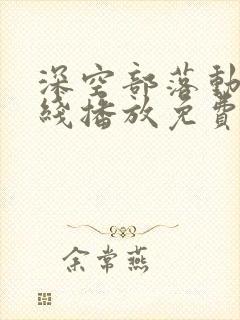 深空部落動
綫播放免費
余常燕